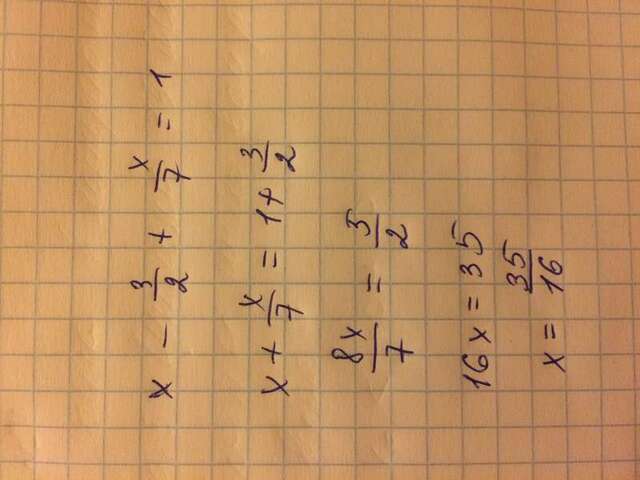 x - 3/2 + x/7 = 1
x + x/7 = 1 + 3/2
8x/7 = 5/2
16x = 35
x = 35/16